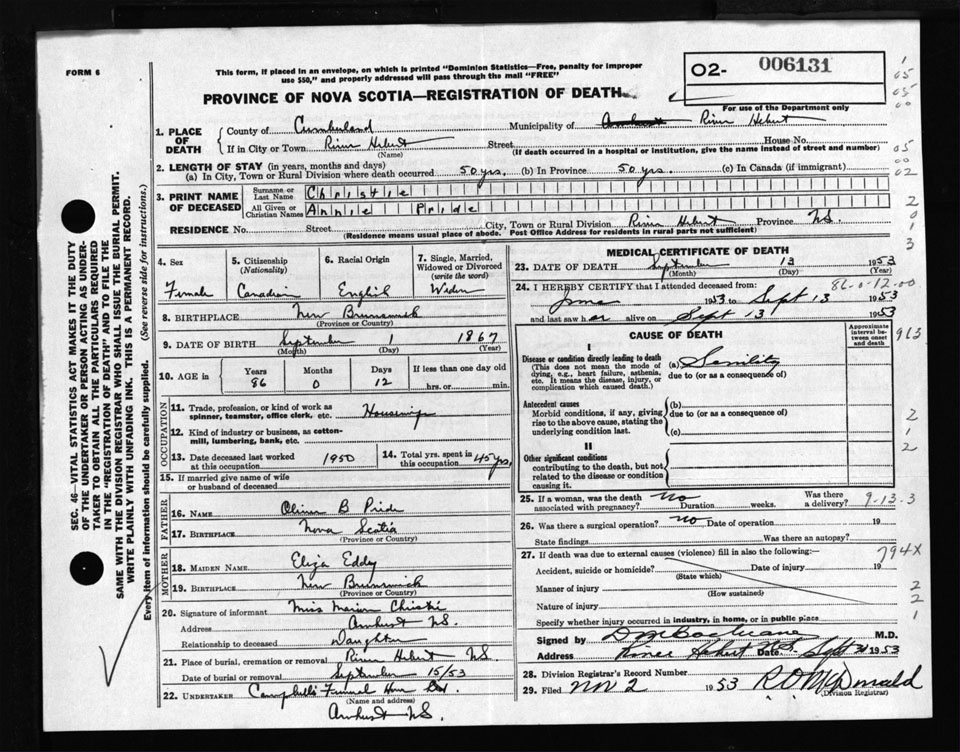 FORM 6
This form, if placed in an envelope, on which is printed "Dominion Statistics—Free, penalty for improper
use $50," and properly addressed will pass through the mail "FREE"
O2- 006131
For use of the Department only
PROVINCE OF NOVA SCOTIA—REGISTRATION OF DEATH
1. PLACE OF DEATH
County of Cumberland Municipality of Amherst River Hebert
If in City or Town River Hebert Street House No.
(Name) (If death occurred in a hospital or institution, give the name instead of street and number)
2. LENGTH OF STAY (in years, months and days)
(a) In City, Town or Rural Division where death occurred 50 yrs. (b) In Province 50 yrs. (c) In Canada (if immigrant)
3. PRINT NAME OF DECEASED
Surname or Last Name Christie
All Given or Christian Names Annie Pride
RESIDENCE No. Street City, Town or Rural Division River Hebert Province N.S.
(Residence means usual place of abode. Post Office Address for residents in rural parts not sufficient)
4. Sex
Female
5. Citizenship (Nationality)
Canadian
6. Racial Origin
English
7. Single, Married, Widowed or Divorced (write the word)
Widow
8. BIRTHPLACE New Brunswick
(Province or Country)
9. DATE OF BIRTH September 1 1867
(Month) (Day) (Year)
10. AGE in Years 86 Months 0 Days 12 If less than one day old hrs. or min.
OCCUPATION
11. Trade, profession, or kind of work as spinner, teamster, office clerk, etc. Housewife
12. Kind of industry or business, as cotton-mill, lumbering, bank, etc.
13. Date deceased last worked at this occupation 1950
14. Total yrs. spent in this occupation 45 yrs.
15. If married give name of wife or husband of deceased
FATHER
16. NAME Oliver B Pride
17. BIRTHPLACE Nova Scotia
(Province or Country)
MOTHER
18. MAIDEN NAME Eliza Eddy
19. BIRTHPLACE New Brunswick
(Province or Country)
20. Signature of informant Miss Marion Christie
Address Amherst N.S.
Relationship to deceased Daughter
21. Place of burial, cremation or removal River Hebert N.S.
Date of burial or removal September 15/53
22. UNDERTAKER Campbell's Funeral Home Ltd.
(Name and address)
Amherst N.S.
MEDICAL CERTIFICATE OF DEATH
23. DATE OF DEATH September 13 1953
(Month) (Day) (Year)
24. I HEREBY CERTIFY that I attended deceased from:
86-0-12-00
June 1953 to Sept 13 1953
and last saw her alive on Sept 13 1953
CAUSE OF DEATH
Approximate interval between onset and death
I
Disease or condition directly leading to death
(This does not mean the mode of dying, e.g., heart failure, asthenia, etc. It means the disease, injury, or complication which caused death.)
(a) Senility
due to (or as a consequence of)
Antecedent causes
Morbid conditions, if any, giving rise to the above cause, stating the underlying condition last.
(b)
due to (or as a consequence of)
(c)
II
Other significant conditions
contributing to the death, but not related to the disease or condition causing it.
25. If a woman, was the death associated with pregnancy? No Duration weeks. Was there a delivery?
9-13-3
26. Was there surgical operation? no Date of operation 19
State findings Was there an autopsy?
27. If death was due to external causes (violence) fill in also the following:—
794X
Accident, suicide or homicide? Date of injury 19
(State which)
Manner of injury
(How sustained)
Nature of injury
Specify whether injury occurred in industry, in home, or in public place
Signed by M.D.
Address River Hebert N.S. Date Sept 1953
28. Division Registrar's Record Number
29. Filed Nov 2 1953 R.O. McDonald
(Division Registrar)
SEC. 46—VITAL STATISTICS ACT MAKES IT THE DUTY
OF THE UNDERTAKER OR PERSON ACTING AS UNDER-
TAKER TO OBTAIN ALL THE PARTICULARS REQUIRED
IN THE "REGISTRATION OF DEATH" AND TO FILE THE
SAME WITH THE DIVISION REGISTRAR WHO SHALL ISSUE THE BURIAL PERMIT.
WRITE PLAINLY WITH UNFADING INK. THIS IS A PERMANENT RECORD.
Every item of information should be carefully supplied. (See reverse side for instructions.)
1
05
05
00
05
00
02
2
0
1
3
913
2
1
2
2
2
1